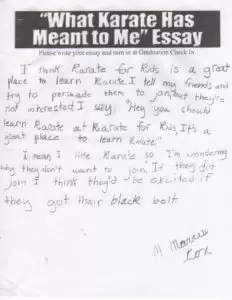 "What Karate Has
Meant to Me" Essay
Please write your essay and turn in at Graduation Check In
I think Karate for Kids is a great
place to learn Karate. I tell my friends and
try to persuade them to join, but they're
not interested. I say, "Hey you should
learn Karate at Karate for Kids. It's a
great place to learn Karate."
I mean, I like Karate so I'm wondering
why they don't want to join. If they did
join I think they'd be excited if
they got their black belt.
M Marcus
Cox